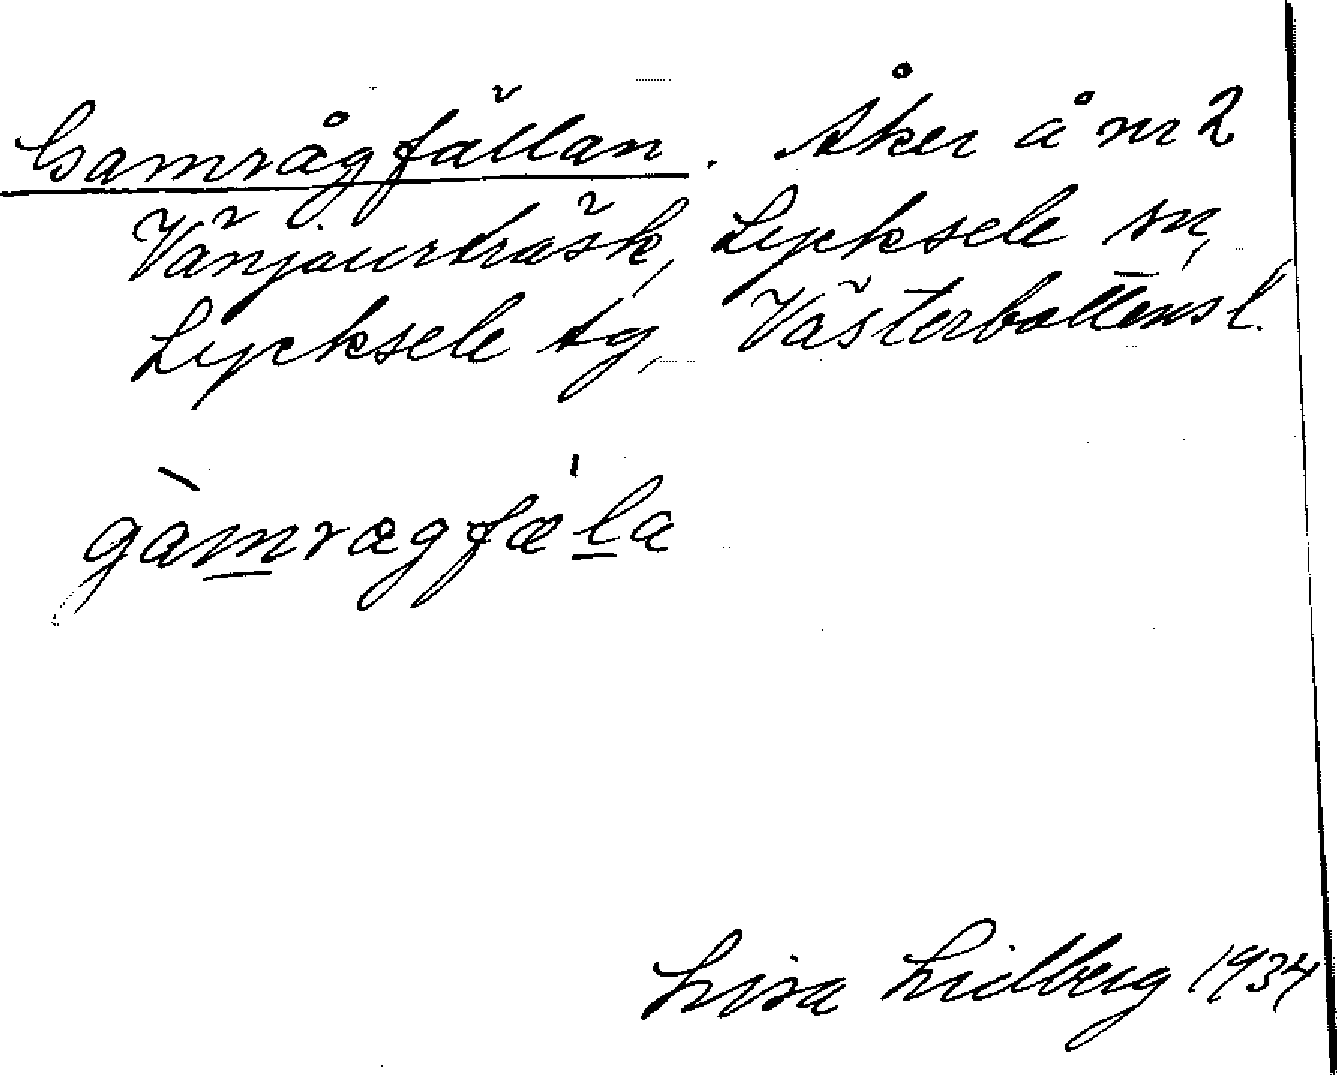 Gamrågfällan. Åker å nr 2
Vänjaurträsk, Lycksele sn,
Lycksele tg, Västerbottens l.
gàmragfæ̍la
Lisa Lidberg 1934